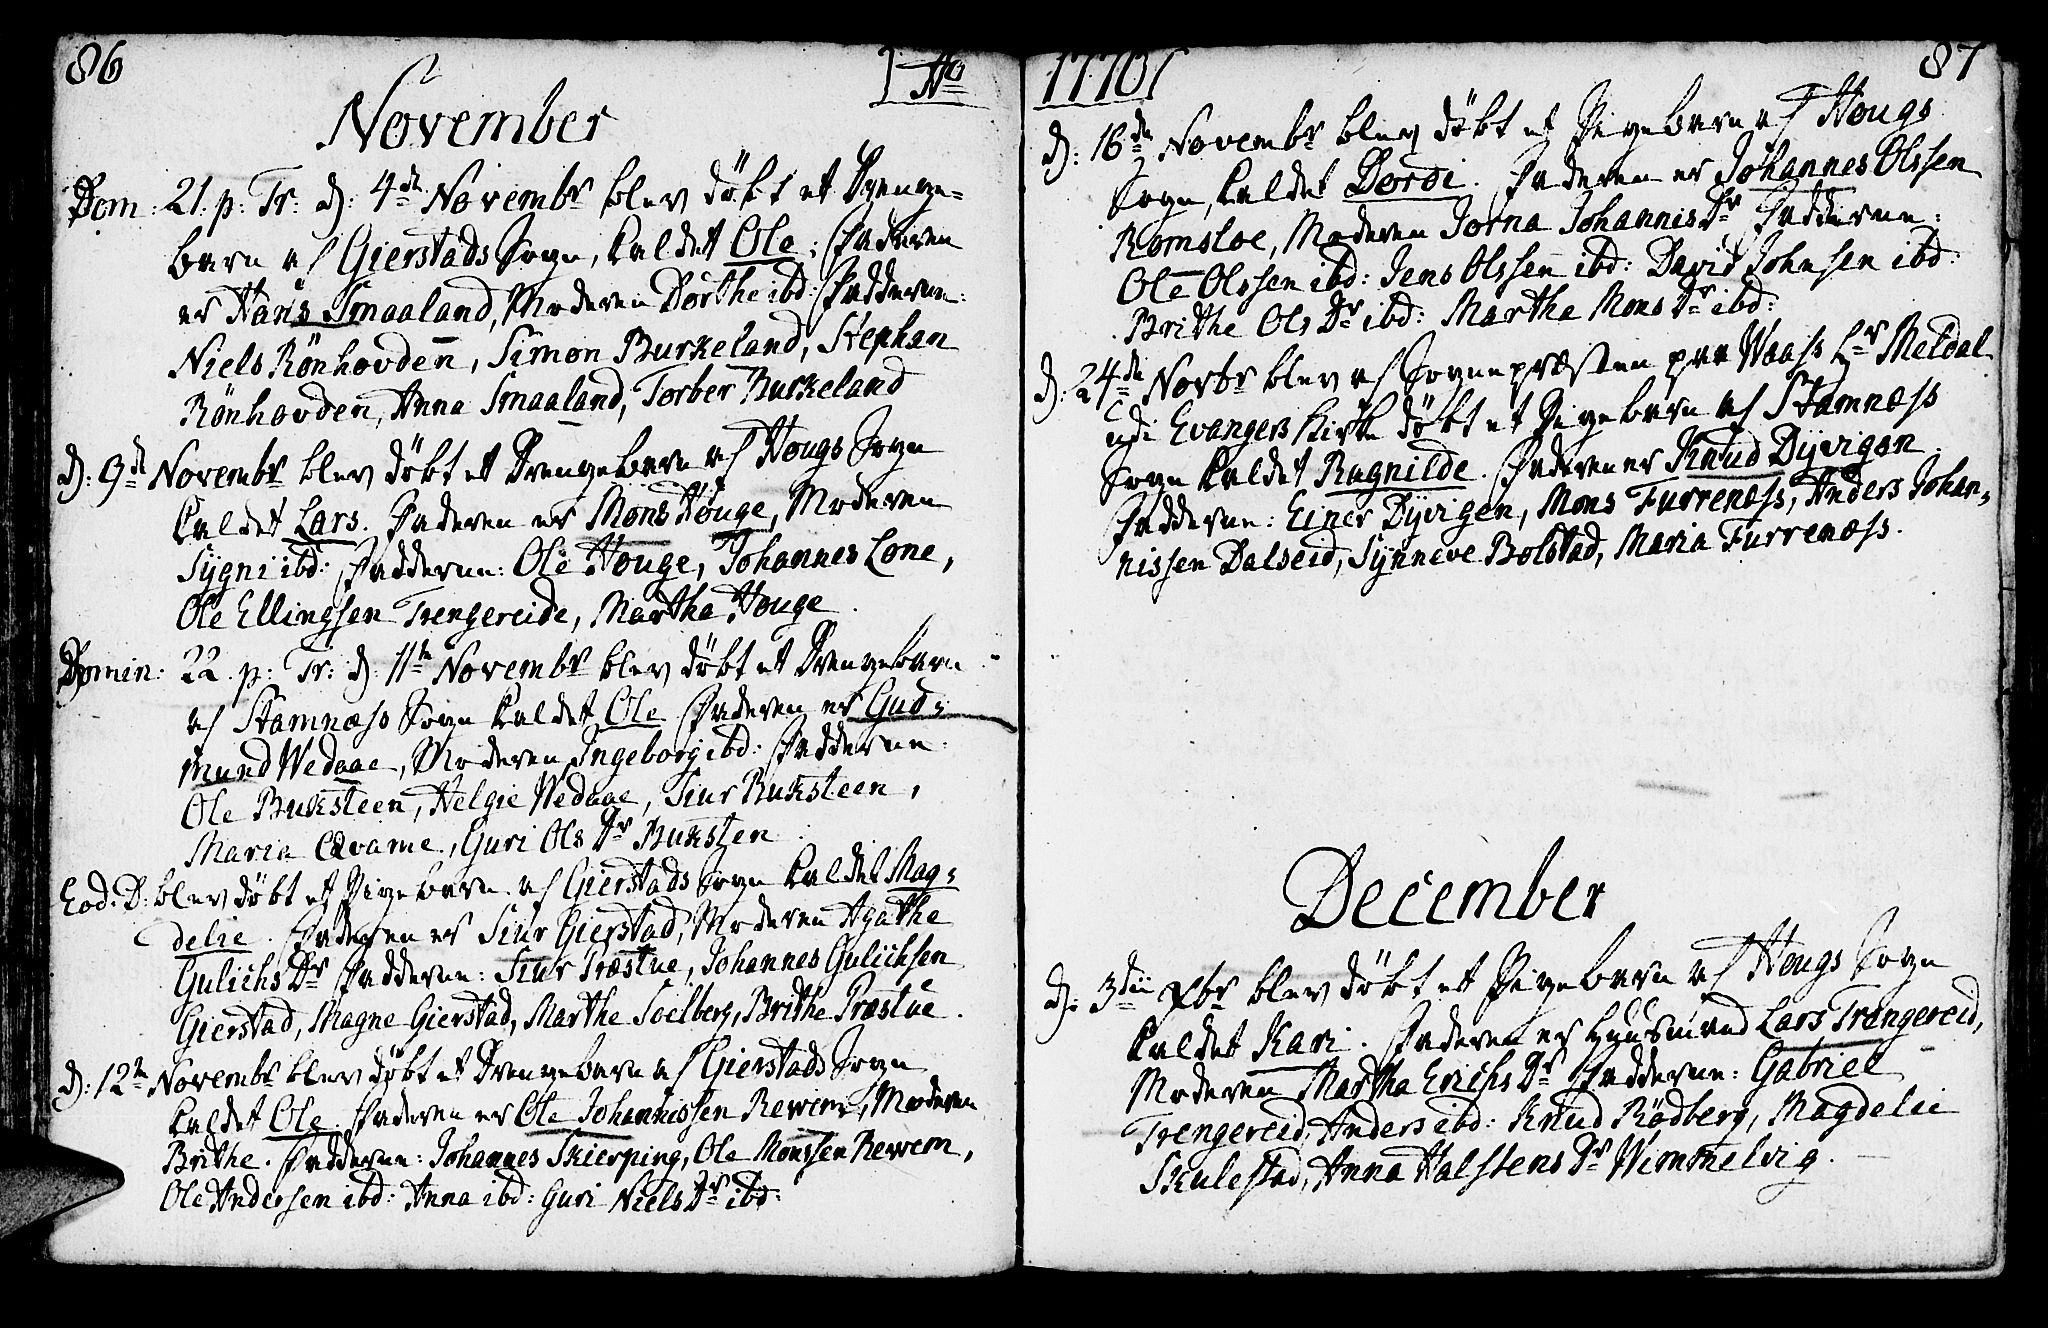 86
Ao
November
Dom: 21. p: Tr: d: 4de Novembr blev döbt et Drenge-
barn af Gierstads Sogn, kaldet Ole; Faderen
er Hans Smaaland, Moderen Dorthe ibd: Fadderne:
Niels Rönhovden, Simon Burkeland, Stephan
Rönhovden, Anna Smaaland, Torber Burkeland
d: 9de Novembr blev döbt et Drengebarn af Hougs Sogn
kaldet Lars. Faderen er Mons Houge, Moderen
Sygni ibd: Fadderne: Ole Houge, Johannes Lone,
Ole Ellingsen Trengereide, Martha Houge.
Domin: 22. p: Tr: d: 11te Novembr blev döbt et Drengebarn
af Stamnæss Sogn kaldet Ole Faderen er Gud-
mund Wedaae, Moderen Ingeborg ibd: Fadderne:
Ole Buksteen, Helgie Wedaae, Siur Buksteen,
Maria Qvame, Guri Ols Dr Buksten
Eod: D: blev döbt et Pigebarn af Gierstads Sogn kaldet Mag-
delie. Faderen er Siur Gierstad, Moderen Agathe
Gulichs Dr Fadderne: Siur Præstue, Johannes Guliichsen
Gierstad, Magne Gierstad, Marthe Soelberg, Brithe Præstue.
d: 12te Novembr blev döbt et Drengebarn af Gierstads Sogn
kaldet Ole. Faderen er Ole Johannissen Rewem, Moderen
Brithe. Fadderne: Johannes Skierping, Ole Monssen Rewem,
Ole Andersen ibd: Anna ibd: Guri Niels Dr ibd:
1770
87
d: 16de Novembr blev döbt et Pigebarn af Hougs
Sogn, kaldet Dordi. Faderen er Johannes Olssen
Romsloe, Moderen Jorna Johannis Dr Fadderne:
Ole Olssen ibd: Jens Olssen ibd: David Johnsen ibd:
Brithe Ols Dr ibd: Martha Mons Dr ibd:
d: 24de Novbr blev af Sognepræsten paa Waass Hr Meldal
udi Evangers Kirke döbt et Pigebarn af Stamnæss
Sogn kaldet Ragnilde. Faderen er Knud Dyvigen
Fadderne: Einer Dyvigen, Mons Furrenæss, Anders Johan-
nissen Dalseid, Synneve Bolstad, Maria Furrenæss.
December
d: 3dii Xbr blev döbt et Pigebarn af Hougs Sogn
kaldet Kari. Faderen er Huusmand Lars Trengereid,
Moderen Martha Erichs Dr Fadderne: Gabriel
Trengereid, Anders ibd: Knud Rödberg, Magdelii
Skulestad, Anna Halstens Dr Wimmelvig.